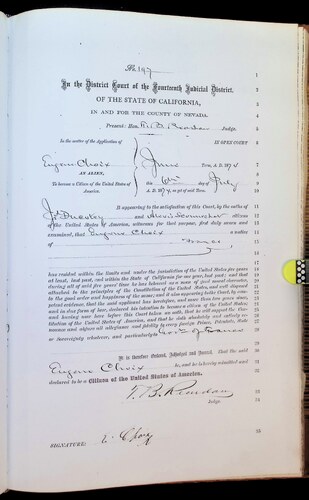 No 197
In the District Court of the Fourteenth Judicial District,
OF THE STATE OF CALIFORNIA,
IN AND FOR THE COUNTY OF NEVADA.
Present: Hon. T. B. Reardan Judge.
In the matter of the Application of
IN OPEN COURT
Eugene Choix
AN ALIEN,
To become a Citizen of the United States of America.
June Term, A. D. 187
this 6th day of July
A. D. 187 , as yet of said Term.
It appearing to the satisfaction of this Court, by the oaths of
and citizens
of the United States of America, witnesses for that purpose, first duly sworn and
examined, that Eugene Choix a native
of France
has resided within the limits and under the jurisdiction of the United States five years
at least, last past, and within the State of California for one year, last past; and that
during all of said five years' time he has behaved as a man of good moral character,
attached to the principles of the Constitution of the United States, and well disposed
to the good order and happiness of the same; and it also appearing to the Court, by competent
evidence, that the said applicant has heretofore, and more than two years since,
and in due form of law, declared his intention to become a citizen of the United States;
and having now here before this Court taken an oath, that he will support the Constitution
of the United States of America, and that he doth absolutely and entirely renounce
and abjure all allegiance and fidelity to every foreign Prince, Potentate, State
or Sovereignty whatever, and particularly to of France
It is therefore Ordered, Adjudged and Decreed, That the said
Eugene Choix be, and he is hereby admitted and
declared to be a Citizen of the United States of America.
T. B. Reardan
Judge.
SIGNATURE:
1
2
3
4
5
6
7
8
9
10
11
12
13
14
15
16
17